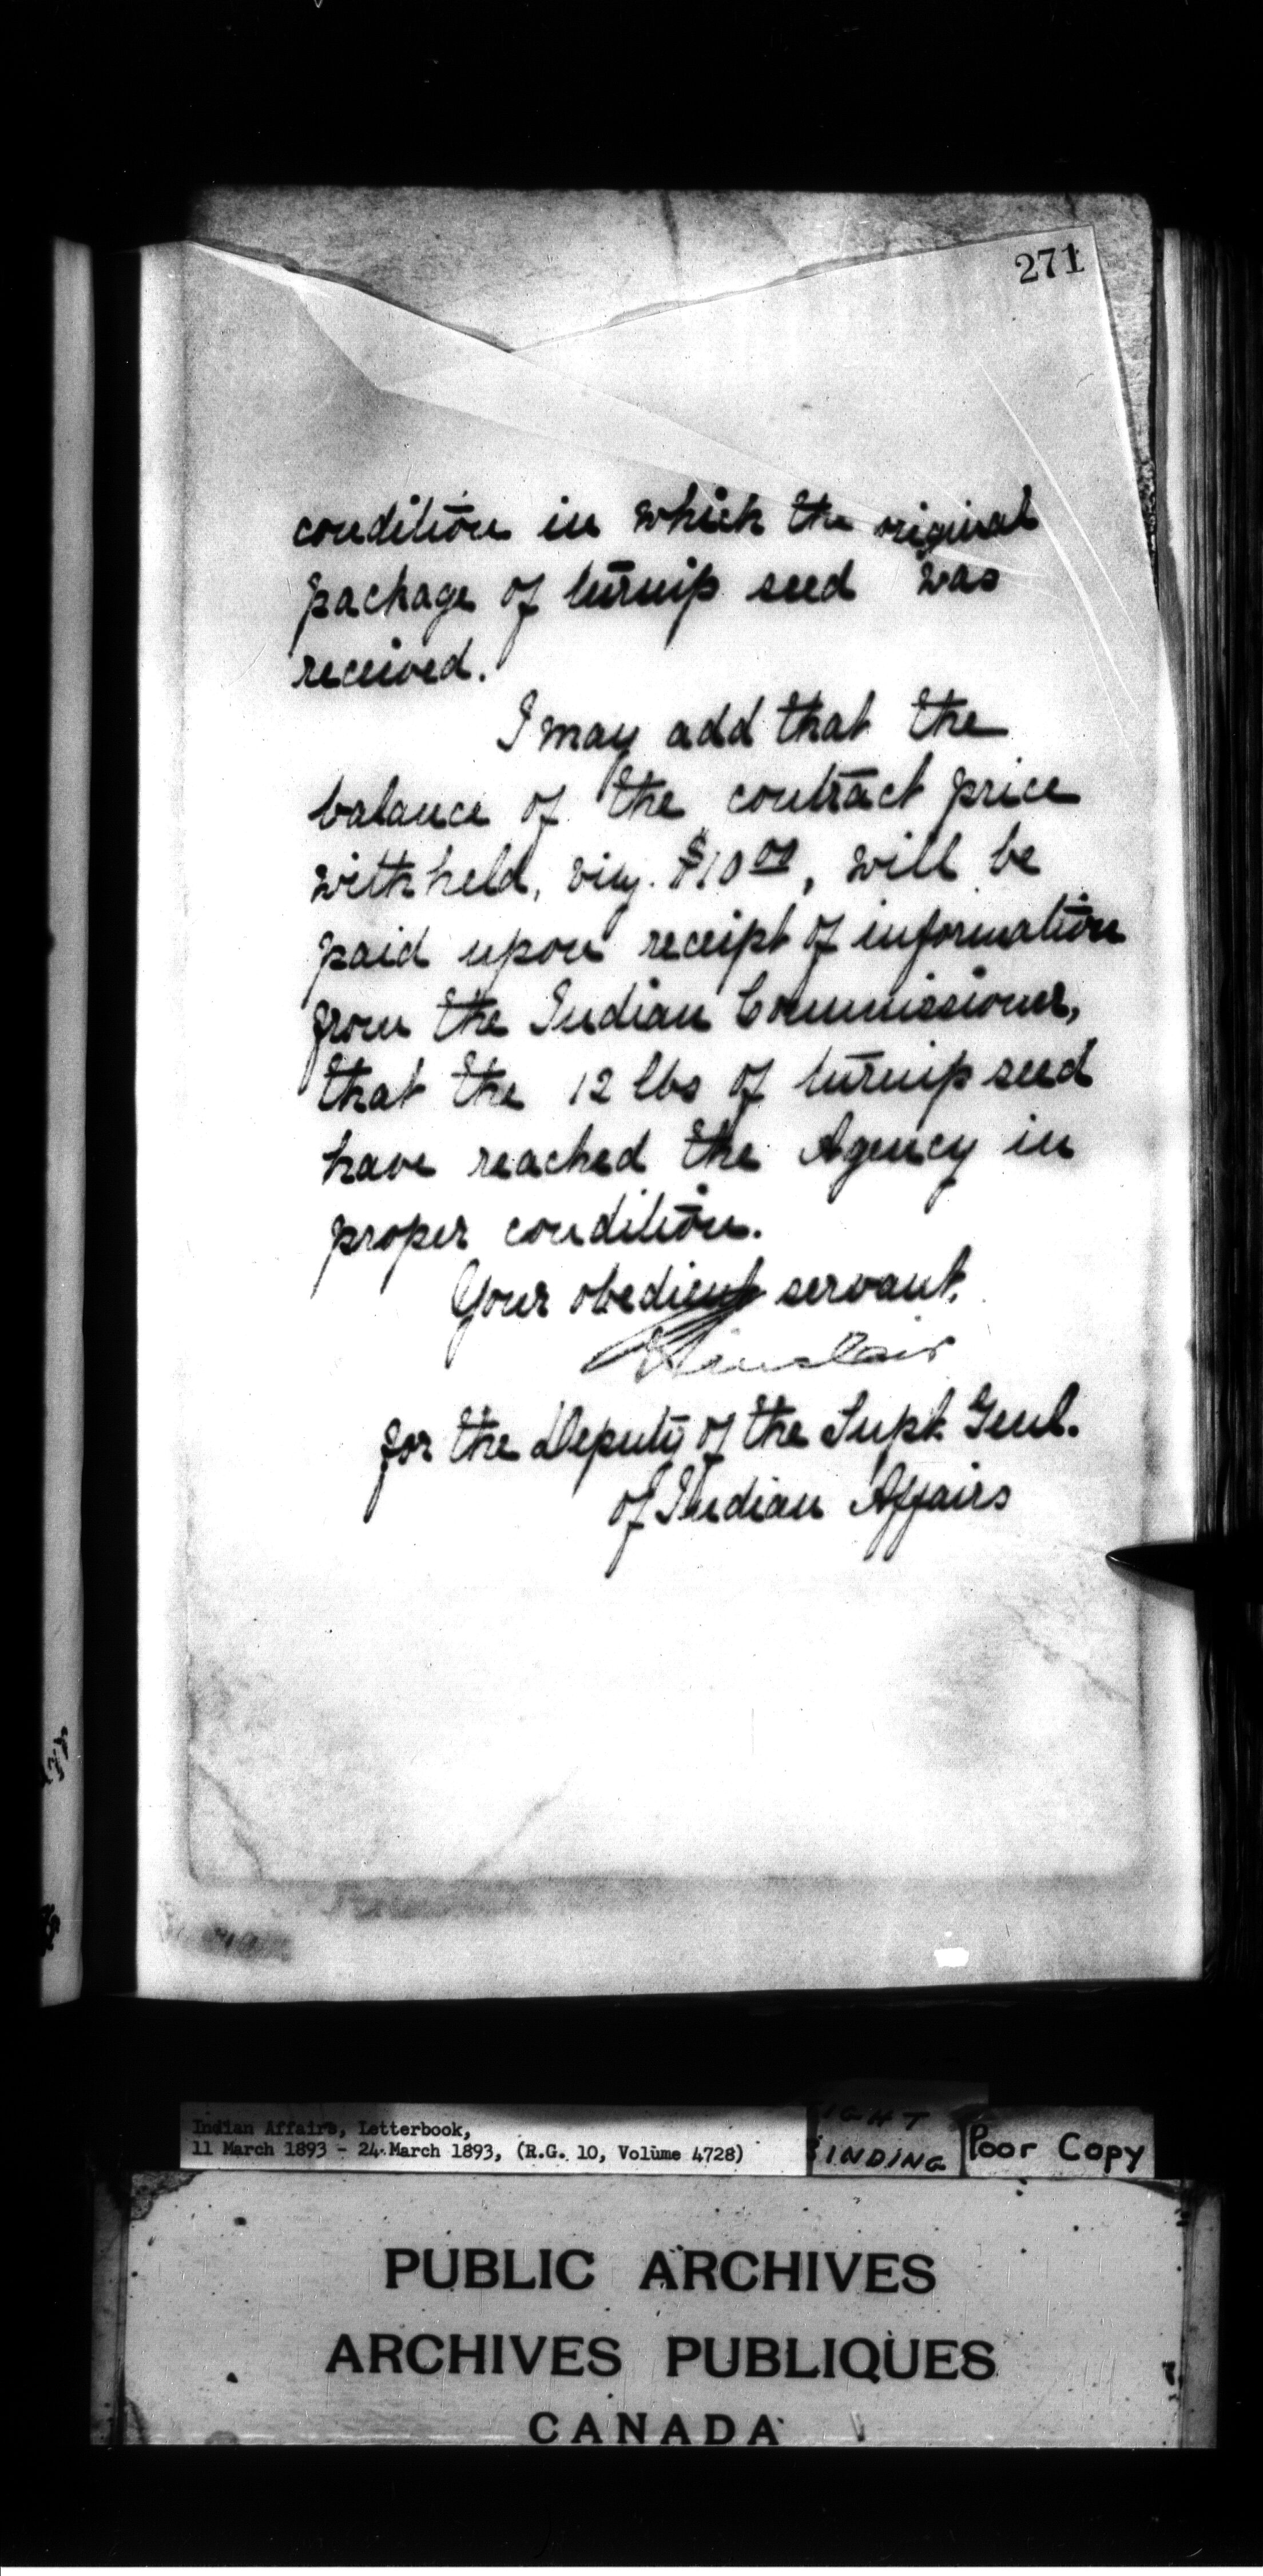 271
condition in which the original
package of turnip seed was
received.
I may add that the
balance of the contract price
withheld, viz. $10.00, will be
paid upon receipt of information
from the Indian Commissioner,
that the 12 lbs of turnip seed
have reached the Agency in
proper condition.
Your obedient servant.
Sinclair
for the Deputy of the Supt. Genl.
of Indian Affairs
Indian Affairs, Letterbook,
11 March 1893 - 24 March 1893, (R.G. 10, Volume 4728)
IGHT
BINDING
Poor Copy
PUBLIC ARCHIVES
ARCHIVES PUBLIQUES
CANADA